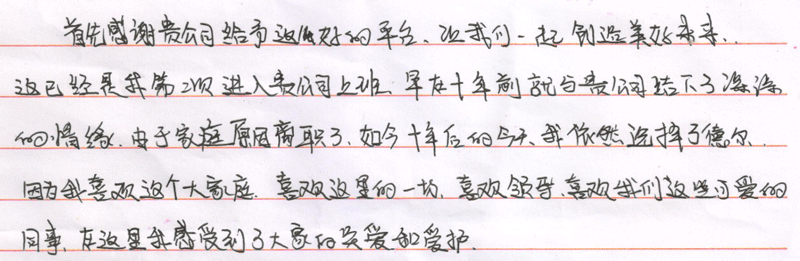 首先感谢贵公司给予这么好的平台、让我们一起创造美好未来、
这已经是我第2次进入贵公司上班、早在十年前就与贵公司结下了深深
的情缘、由于家庭原因离职了、如今十年后的今天、我依然选择了德尔、
因为我喜欢这个大家庭、喜欢这里的一切、喜欢领导、喜欢我们这些可爱的
同事、在这里我感受到了大家的关爱和爱护、